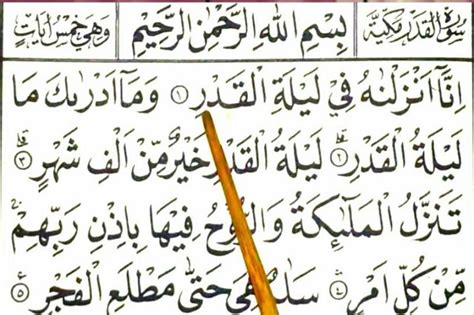 سُوْرَةُ الْقَدْرِ مَكِّيَّةٌ
بِسْمِ اللهِ الرَّحْمٰنِ الرَّحِيْمِ
وَهِيَ خَمْسُ اٰيَاتٍ
اِنَّآ اَنْزَلْنٰهُ فِيْ لَيْلَةِ الْقَدْرِ ۝١ وَمَآ اَدْرٰىكَ مَا
لَيْلَةُ الْقَدْرِ ۝٢ لَيْلَةُ الْقَدْرِ خَيْرٌ مِّنْ اَلْفِ شَهْرٍ ۝٣
تَنَزَّلُ الْمَلٰٓئِكَةُ وَالرُّوْحُ فِيْهَا بِاِذْنِ رَبِّهِمْ
مِّنْ كُلِّ اَمْرٍ ۝٤ سَلٰمٌ هِيَ حَتّٰى مَطْلَعِ الْفَجْرِ ۝٥